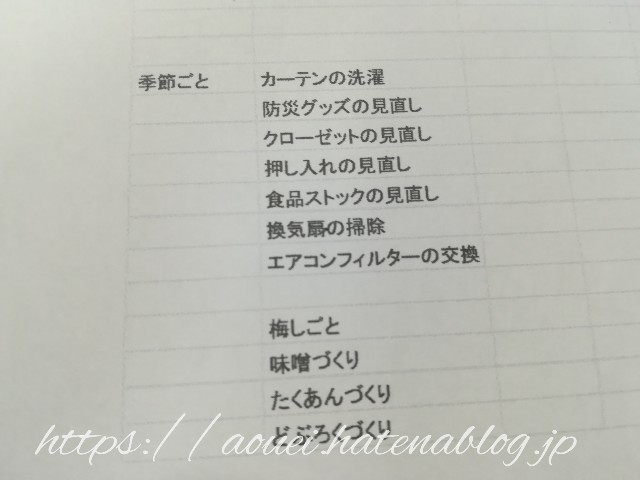 季節ごと カーテンの洗濯
防災グッズの見直し
クローゼットの見直し
押し入れの見直し
食品ストックの見直し
換気扇の掃除
エアコンフィルターの交換
梅しごと
味噌づくり
たくあんづくり
どぶろくづくり
https://aouei.hatenablog.jp